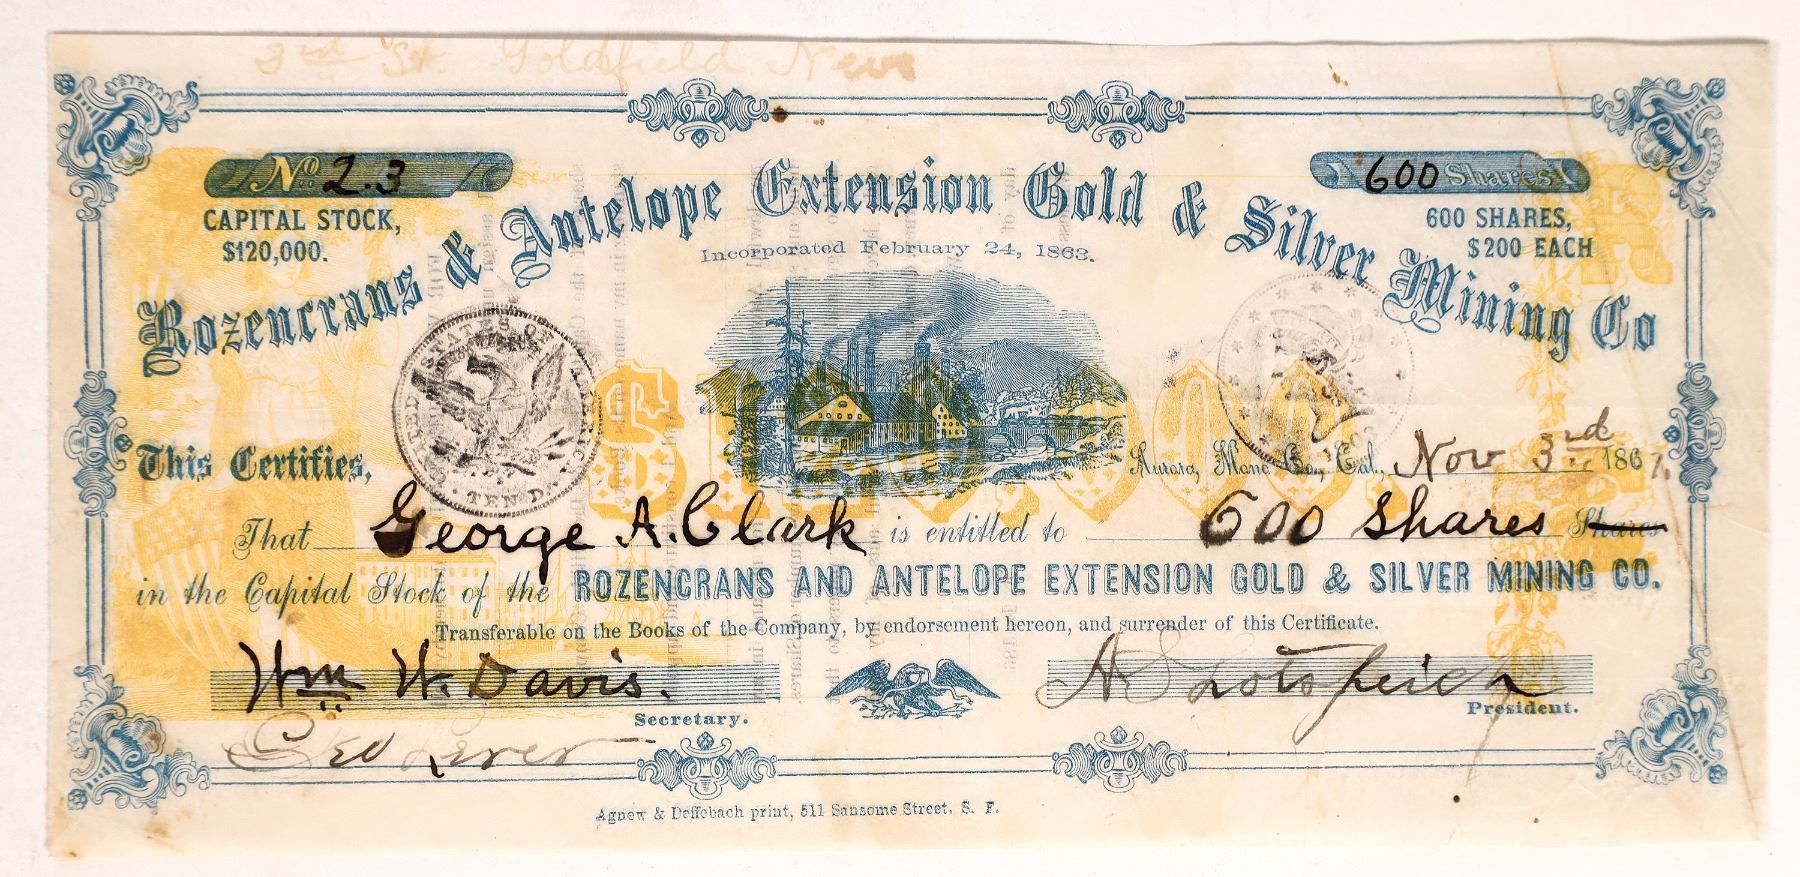 3rd St. Goldfield Nev
No. 23
600 Shares.
CAPITAL STOCK,
$120,000.
600 SHARES,
$200 EACH
Rozencrans & Antelope Extension Gold & Silver Mining Co
Incorporated February 24, 1863.
UNITED STATES OF AMERICA
TEN D.
$1,000.
This Certifies,
Aurora, Mono Co., Cal., Nov 3rd 1867.
That George A. Clark is entitled to 600 Shares Shares
in the Capital Stock of the ROZENCRANS AND ANTELOPE EXTENSION GOLD & SILVER MINING CO.
Transferable on the Books of the Company, by endorsement hereon, and surrender of this Certificate.
Wm W. Davis.
Secretary.
President.
Geo
Agnew & Deffebach print, 511 Sansome Street, S. F.